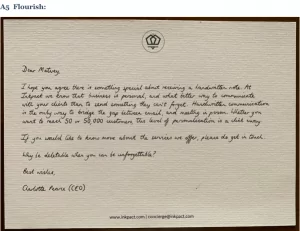 A5 Flourish:
Dear Mativey
I hope you agree there is something special about receiving a handwritten note. At
Inkpact we know that business is personal, and what better way to communicate
with your clients than to send something they can't forget. Handwritten communication
is the only way to bridge the gap between email, and meeting in person. Whether you
want to reach 50 or 50,000 customers this level of personalisation is a click away.
If you would like to know more about the services we offer, please do get in touch.
Why be deletable when you can be unforgettable?
Best wishes,
Charlotte Pearce (CEO)
www.inkpact.com | concierge@inkpact.com